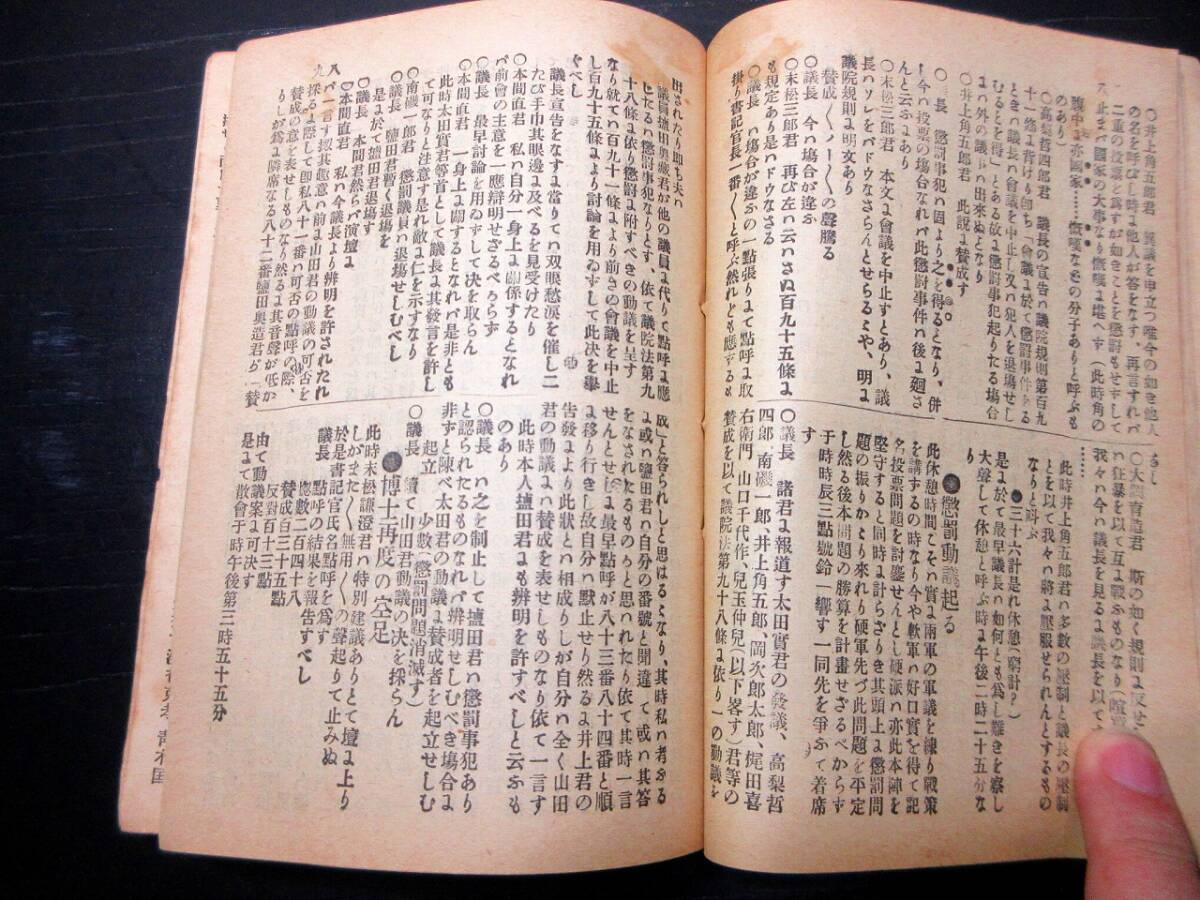 ○井上角五郎君 異議を申立つ唯今の如き他人
の名を呼びし時よ他人が答をなす、再言すれバ
二重の投票と爲すが如きことを懲罰もせずして
ハ止まバ國家の大事なり慨嘆よ堪へず(此時角の
腹中よ亦國家……慨嘆なぞの分子ありと呼ぶも
のあり)
○高梨哲四郎君 議長の宣告ハ議院規則第百九
十一條よ背けり卽ち「會議よ於て懲罰事件ある
ときハ議長ハ會議を中止し又ハ犯人を退場せし
むるとを得」とある故よ懲罰事犯起りたる場合
よハ外の議事ハ出來ぬとなり
○井上角五郎君 此説よ賛成す
○ 長 懲罰事犯ハ固より之を得るとなり、併
し今ハ投票の場合なれバ此懲罰事件ハ後よ廻さ
んと云ふよあり
○末松三郎君 本文よ會議を中止すとあり、議
長ハソレをバドウなさらんとせらるゝや、明よ
議院規則よ明文あり
賛成〳〵ノー〳〵の聲騰る
○議長 今ハ場合が違ふ
○末松三郎君 再び左ハ云ハさぬ百九十五條よ
も規定あり是ハドウなさる
○議長 ハ場合が違ふの一點張りよて點呼よ取
掛り書記官長一番〳〵と呼ぶ然れども應ずるも
なし
○大 育造君 斯の如く規則よ反せ
ハ狂暴を以て互よ戰ふものなり(喧
我々ハ今ハ議長を見るよ議長を以てせ
此時井上角五郎君ハ多數の壓制と議長の壓制
とを以て我々ハ將よ壓服せられんとするもの
なりと叫ぶ
●三十六計是れ休憩(窮計?)
是よ於て最早議長ハ如何とも爲し難きを察し
大聲して休憩と呼ぶ時よ午後二時二十五分な
り
●懲罰動議起る
此休憩時間こそハ實よ兩軍の軍議を練り戰策
を講するの時なり今や軟軍ハ好口實を得て記
名投票問題を討鏖せんとし硬派ハ亦此本陣を
堅守すると同時よ計らざりき其頭上よ懲罰問
題の振りかゝり來れり硬軍先づ此問題を平定
し然る後本問題の勝算を計畫せざるべからず
于時時辰三點號鈴一響す一同先を爭ふて着席
す
○議長 諸君よ報道す太田實君の發議、高梨哲
四郎、南磯一郎、井上角五郎、岡次郎太郎、梶田喜
右衛門 山口千代作、兒玉仲兒(以下畧す)君等の
賛成を以て議院法第九十八條よ依り一の動議を
出されたり卽ち夫ハ
議員鹽田奥造君が他の議員よ代りて點呼よ應
じたるハ懲罰事犯なりとす、依て議院法第九
十八條よ依り懲罰よ附すべきの動議を呈す
なり就てハ百九十一條より前きの會議を中止
し百九十五條より討論を用ゐずして此決を擧
ぐべし
議長宣告をなすよ當りてハ双眼愁涙を催し二
たび手巾其眼邊よ及べるを見受けたり
○本間直君 私ハ自分一身上よ關係するとなれ
バ前會の主意を一應辯明せざるべからず
○議長 最早討論を用ゐずして決を取らん
○本間直君 一身上よ關するとなれバ是非とも
此時太田實君等首として議長よ其發言を許し
て可なりと注意す是れ敵よ仁を示すなり
○南磯一郎君 懲罰議員ハ退塲せしむべし
○議長 鹽田君暫く退塲を
是よ於て鹽田君退塲す
○議長 本間君然らバ演壇よ
○本間直君 私ハ今議長より辨明を許されたれ
バ一言す扨其趣意ハ前よ山田君の動議の可否を
採るよ際して卽私八十一番ハ可否の點呼の際、
賛成の意を表せしものなり然るよ其音聲が低か
りしが爲よ隣席なる八十二番鹽田奥造君ガ「賛
成」と答られしと思はるゝとなり、其時私ハ考ふる
よ或ハ鹽田君ハ自分の番號と聞違て或ハ其答
をなされたるものゝと思ハれたり依て其時一言
せんとせしよ最早點呼が八十三番八十四番と順
よ移り行きし故自分ハ默止せり然るよ井上君の
告發より此狀とハ相成りしが自分ハ全く山田
君の動議よハ賛成を表せしものなり依て一言す
此時本人鹽田君よも辨明を許すべしと云ふも
のあり
○議長 ハ之を制止して鹽田君ハ懲罰事犯あり
と認られたるものなれバ辨明せしむべき場合よ
非ずと陳べ太田君の動議よ賛成者を起立せしむ
起立 少數(懲罰問題消滅す)
○議長 續て山田君動議の決を採らん
●博士再度の空足
此時末松謙澄君ハ特別建議ありとて壇よ上り
しがまた〳〵無用〳〵の聲起りて止みぬ
於是書記官氏名點呼を爲す
議長 點呼の結果を報告すべし
總數二百四十八
賛成百三十五點
反對百十三點
由て動議案よ可決す
是よて散會于時午後第三時五十五分